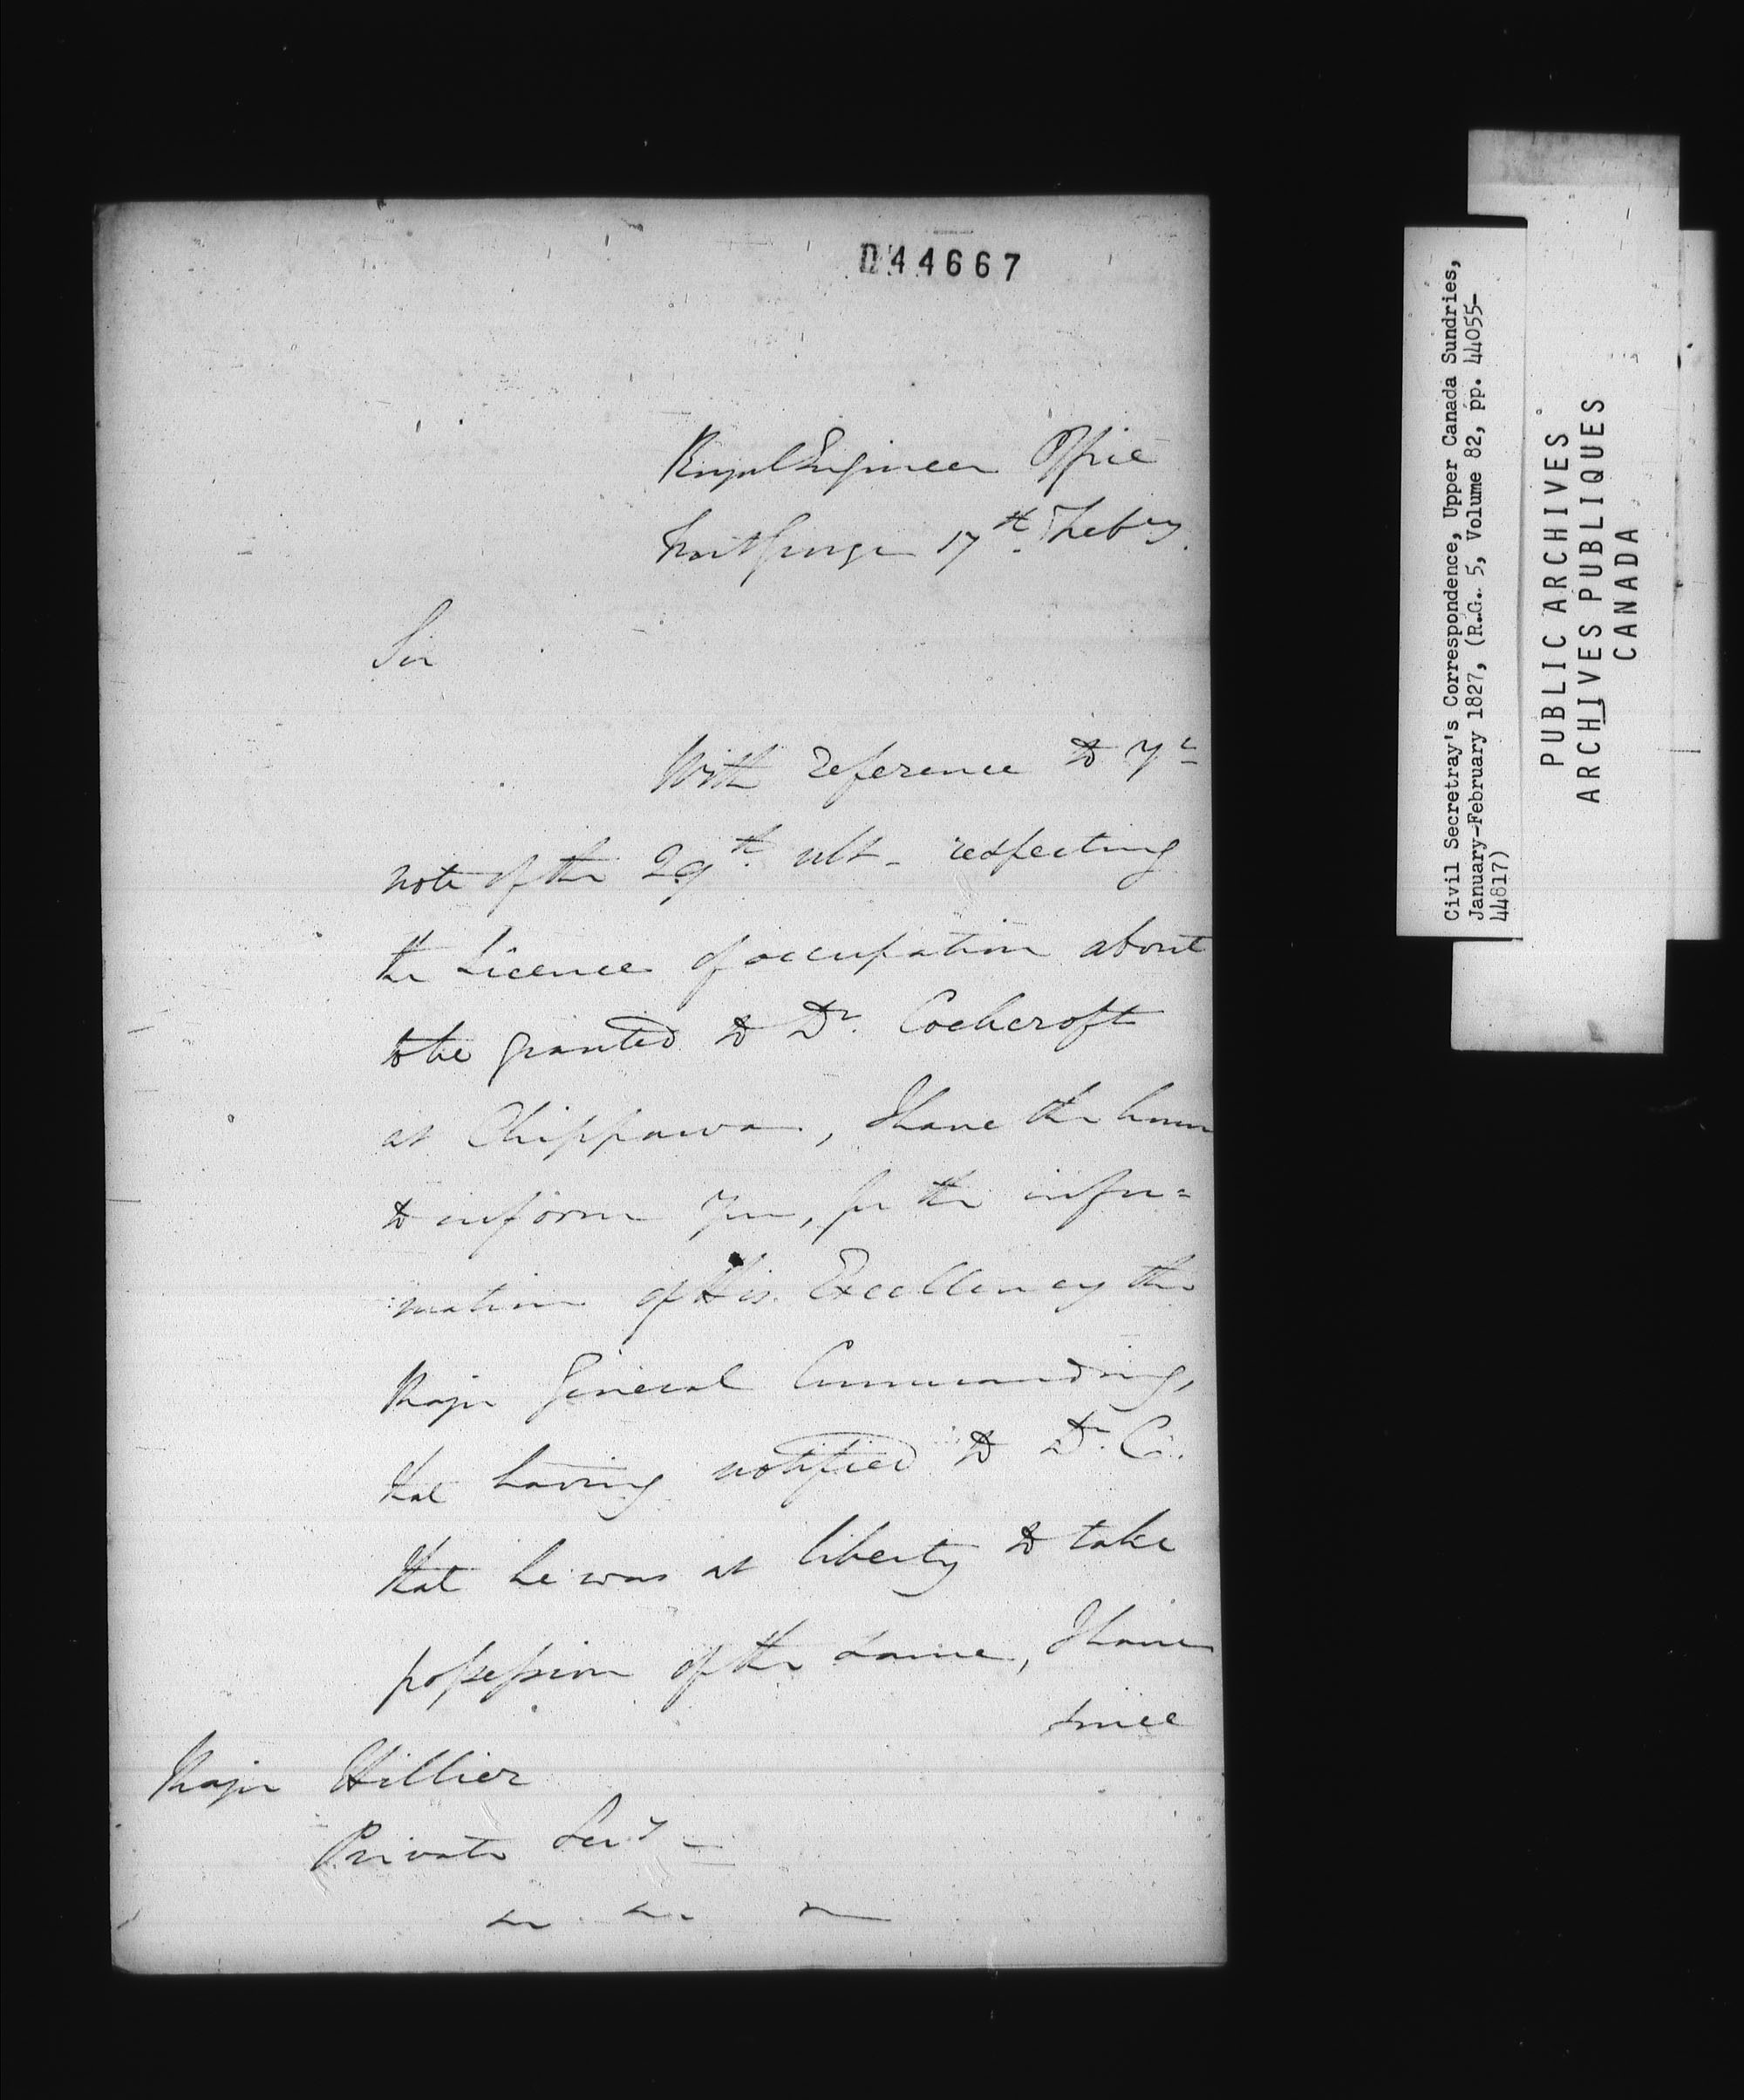 D44667
Royal Engineer Office
Fort George 17th Feby.
Sir
With reference to Yr
note of the 29th ult - respecting
the Licence of occupation about
to be granted to Dr. Cockcroft
at Chippawa, I have the honor
to inform You, for the infor=
mation of His Excellency the
Major General Commanding,
that having notified to Dr. C.
that he was at liberty to take
possession of the same, I have
since
Major Hillier
Private Secy -
Civil Secretray's Correspondence, Upper Canada Sundries,
January-February 1827, (R.G. 5, Volume 82, pp. 44055-
44817)
PUBLIC ARCHIVES
ARCHIVES PUBLIQUES
CANADA